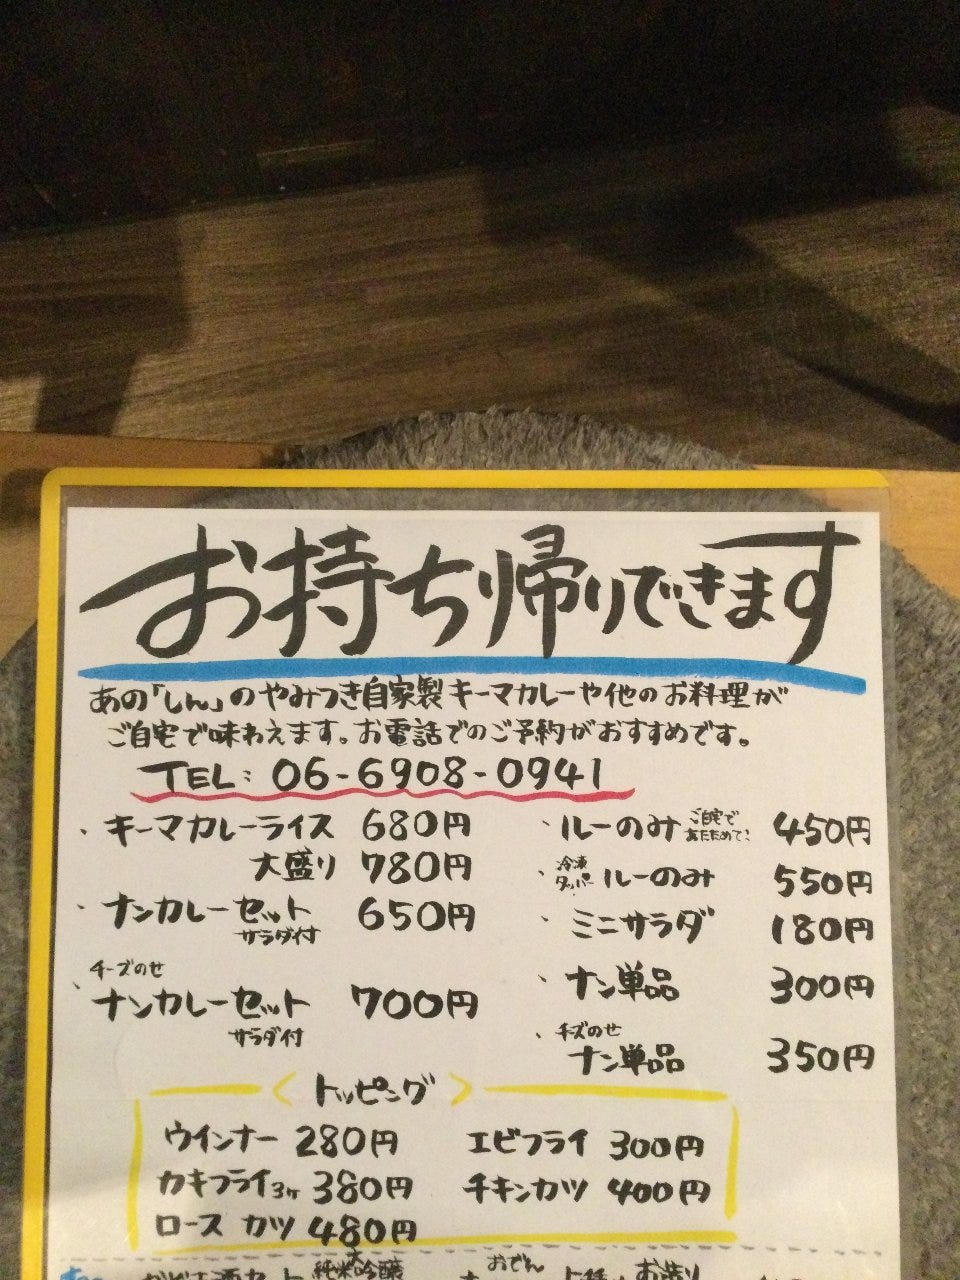 お持ち帰りできます
あの「しん」のやみつき自家製キーマカレーや他のお料理が
ご自宅で味わえます。お電話でのご予約がおすすめです。
TEL: 06-6908-0941
・キーマカレーライス 680円
大盛り 780円
・ナンカレーセット 650円
サラダ付
・チーズのせ
ナンカレーセット 700円
サラダ付
・ルーのみ ご自宅であたためて! 450円
・冷凍タッパー ルーのみ 550円
・ミニサラダ 180円
・ナン単品 300円
・チーズのせ
ナン単品 350円
〈トッピング〉
ウインナー 280円 エビフライ 300円
カキフライ3ヶ 380円 チキンカツ 400円
ロースカツ 480円
純米大吟醸
おでん
お造り